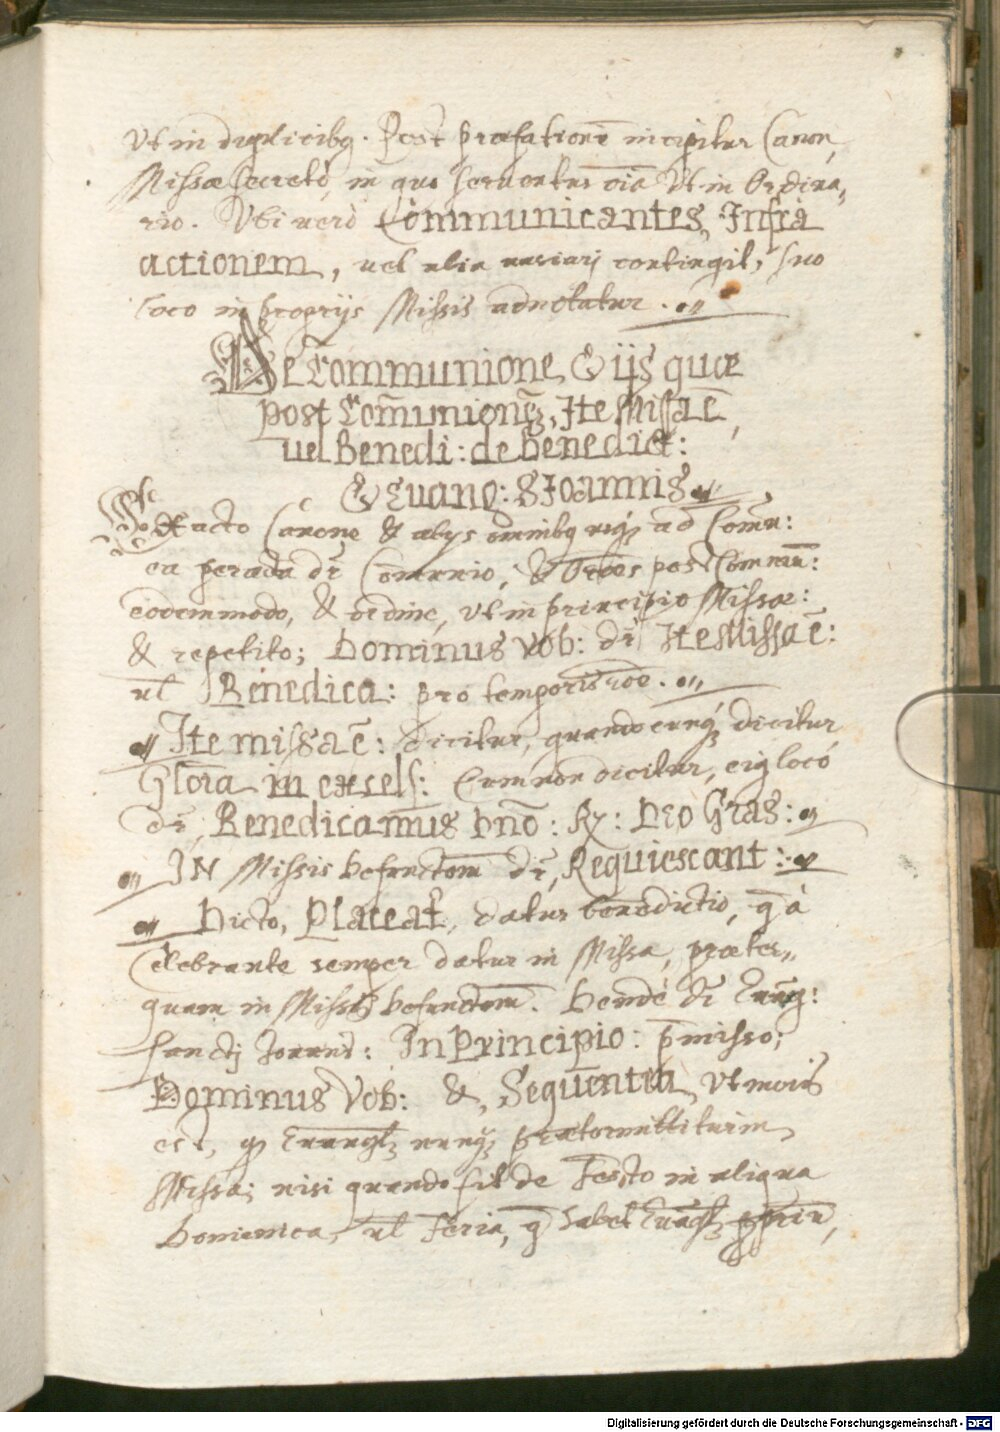 Ut in duplicibꝗ. Post præfationẽ incipitur Canon
Missæ secretò, in quo seruentur oĩa Ut in Ordina„
rio. Ubi uerò Communicantes, Infrà
actionem, uel alia uariarj contingit, suo
loco in proprijs Missis adnotatur.
De Communione, & ijs quæ
post Com̃unionẽ, Ite Missa ẽ,
uel Benedi: de Benedict:
& Euang: S Joannis
Peracto Canone & alijs omnibꝗ usꝗ ad Comu:
ea peracta dr̃ Communio, & Orões post Commun̄:
eodem modo, & ordine, ut in principio Missæ:
& repetito; Dominus Vob: dr̃ Ite Missa ẽ:
ul̃ Benedica: pro temporis rõe.
Ite missa ẽ: dicitur, quandocunqꝫ dicitur
Glõra in excels: Cum non dicitur, eiꝗ locó
dr̃, Benedicam̃us Dnõ: R/: Deo Gras:
IN Missis defunctom̄ dr̃, Requiescant:
Dicto, Placeat, datur benedictio, q̄ à
Celebrante semper datur in Missa, præter„
quam in Missis defunctom̄. Deindè dr̃ Euang:
sanctj Joannis: In Principio: p̄misso;
Dominus Vob: &, Sequentia, Ut moris
est, qꝫ Euangl̃ nunqꝫ prætermittitur in
Missa; nisi quando fit de Festo in aliqua
Dominica, ul̃ Feria, q̄ habet Euãgl̃ ꝓprium,
Digitalisierung gefördert durch die Deutsche Forschungsgemeinschaft - DFG